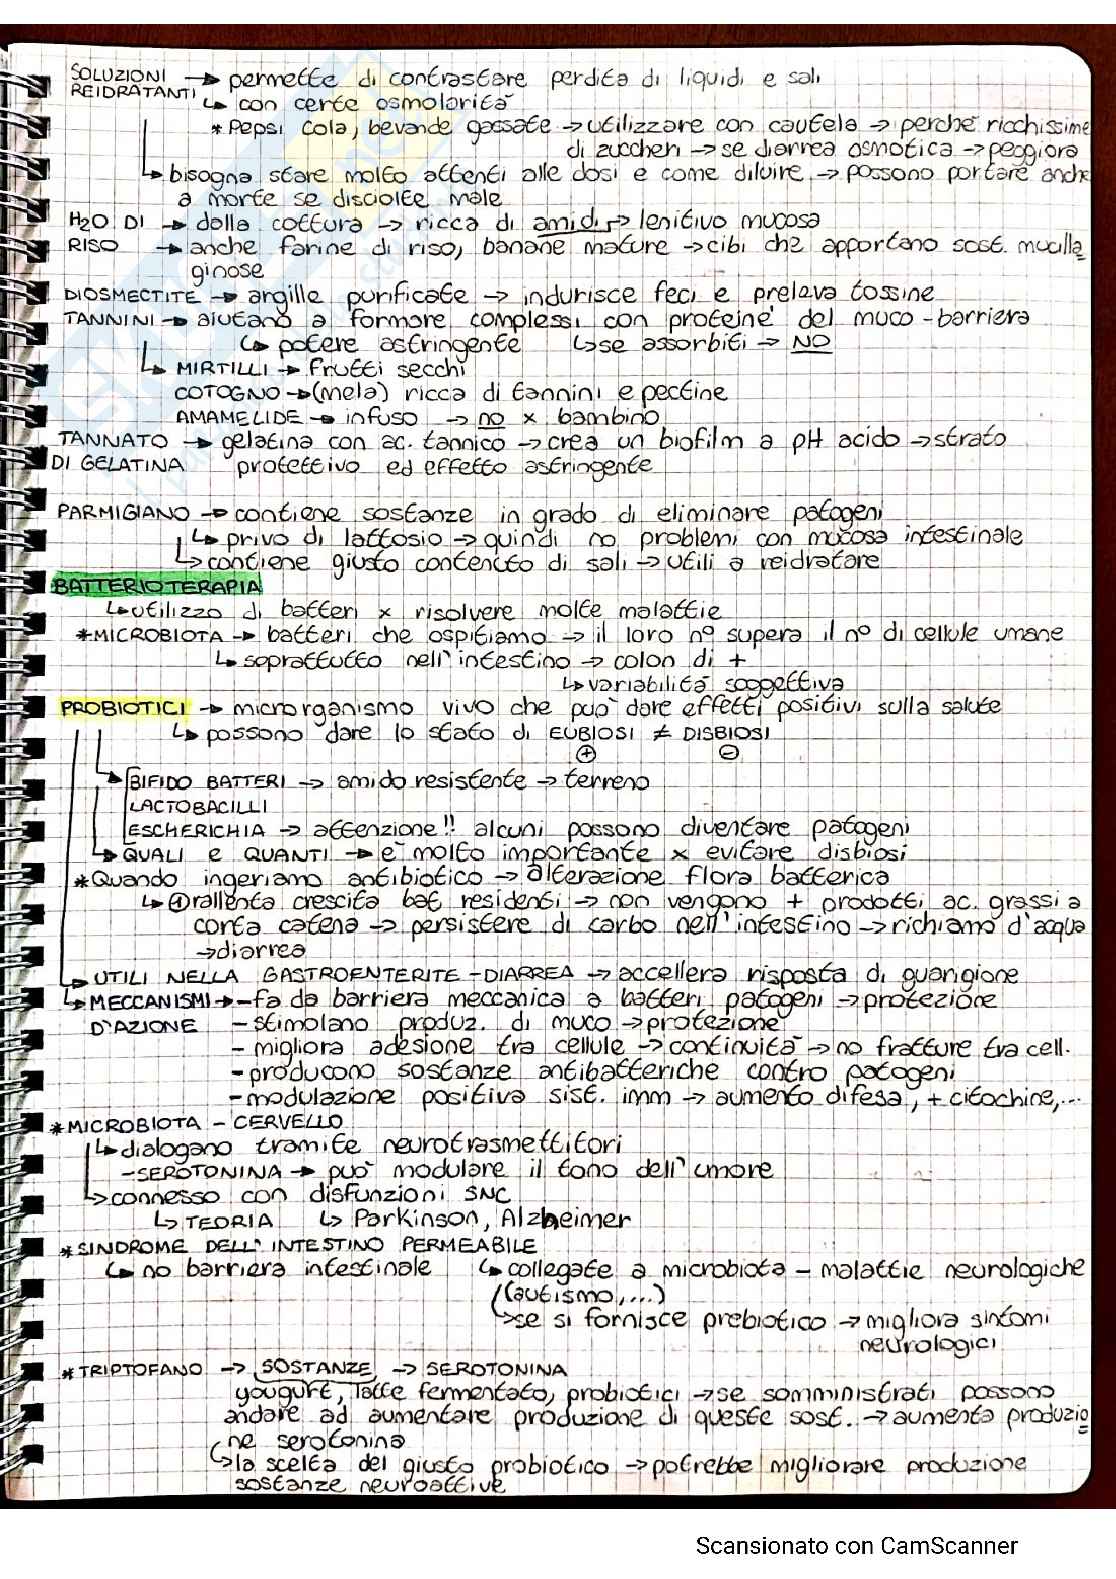 SOLUZIONI → permette di contrastare perdita di liquidi e sali
REIDRATANTI ↳ con certe osmolarità
* Pepsi cola, bevande gassate → utilizzare con cautela → perché ricchissime
di zuccheri → se diarrea osmotica → peggiora
↳ bisogna stare molto attenti alle dosi e come diluire → possono portare anche
a morte se disciolte male
H2O DI → dalla cottura → ricca di amidi → lenitivo mucosa
RISO → anche farine di riso, banane mature → cibi che apportano sost. mucilla
ginose
DIOSMECTITE → argille purificate → indurisce feci e preleva tossine
TANNINI → aiutano a formare complessi con proteine del muco - barriera
↳ potere astringente ↳ se assorbiti → NO
↳ MIRTILLI → frutti secchi
COTOGNO → (mela) ricca di tannini e pectine
AMAMELIDE → infuso → no x bambino
TANNATO → gelatina con ac. tannico → crea un biofilm a pH acido → strato
DI GELATINA protettivo ed effetto astringente
PARMIGIANO → contiene sostanze in grado di eliminare patogeni
↳ privo di lattosio → quindi no problemi con mucosa intestinale
↳ contiene giusto contenuto di sali → utili a reidratare
BATTERIOTERAPIA
↳ utilizzo di batteri x risolvere molte malattie
* MICROBIOTA → batteri che ospitiamo → il loro n° supera il n° di cellule umane
↳ soprattutto nell'intestino → colon di +
↳ variabilità soggettiva
PROBIOTICI → microrganismo vivo che può dare effetti positivi sulla salute
↳ possono dare lo stato di EUBIOSI ≠ DISBIOSI
⊕ ⊖
BIFIDO BATTERI → amido resistente → terreno
LACTOBACILLI
ESCHERICHIA → attenzione!! alcuni possono diventare patogeni
↳ QUALI e QUANTI → è molto importante x evitare disbiosi
* Quando ingeriamo antibiotico → alterazione flora batterica
↳ ① rallenta crescita bat residenti → non vengono + prodotti ac. grassi a
corta catena → persistere di carbo nell'intestino → richiamo d'acqua
→ diarrea
↳ UTILI NELLA GASTROENTERITE - DIARREA → accellera risposta di guarigione
↳ MECCANISMI → - fa da barriera meccanica a batteri patogeni → protezione
D'AZIONE - stimolano produz. di muco → protezione
- migliora adesione tra cellule → continuità → no fratture tra cell.
- producono sostanze antibatteriche contro patogeni
- modulazione positiva sist. imm → aumento difesa, + citochine,...
* MICROBIOTA - CERVELLO
↳ dialogano tramite neurotrasmettitori
- SEROTONINA → può modulare il tono dell'umore
↳ connesso con disfunzioni SNC
↳ TEORIA ↳ Parkinson, Alzheimer
* SINDROME DELL'INTESTINO PERMEABILE
↳ no barriera intestinale ↳ collegate a microbiota - malattie neurologiche
(autismo,...)
↳ se si fornisce prebiotico → migliora sintomi
neurologici
* TRIPTOFANO → SOSTANZE → SEROTONINA
yougurt, latte fermentato, probiotici → se somministrati possono
andare ad aumentare produzione di queste sost. → aumenta produzio
ne serotonina
↳ la scelta del giusto probiotico → potrebbe migliorare produzione
sostanze neuroattive
Scansionato con CamScanner